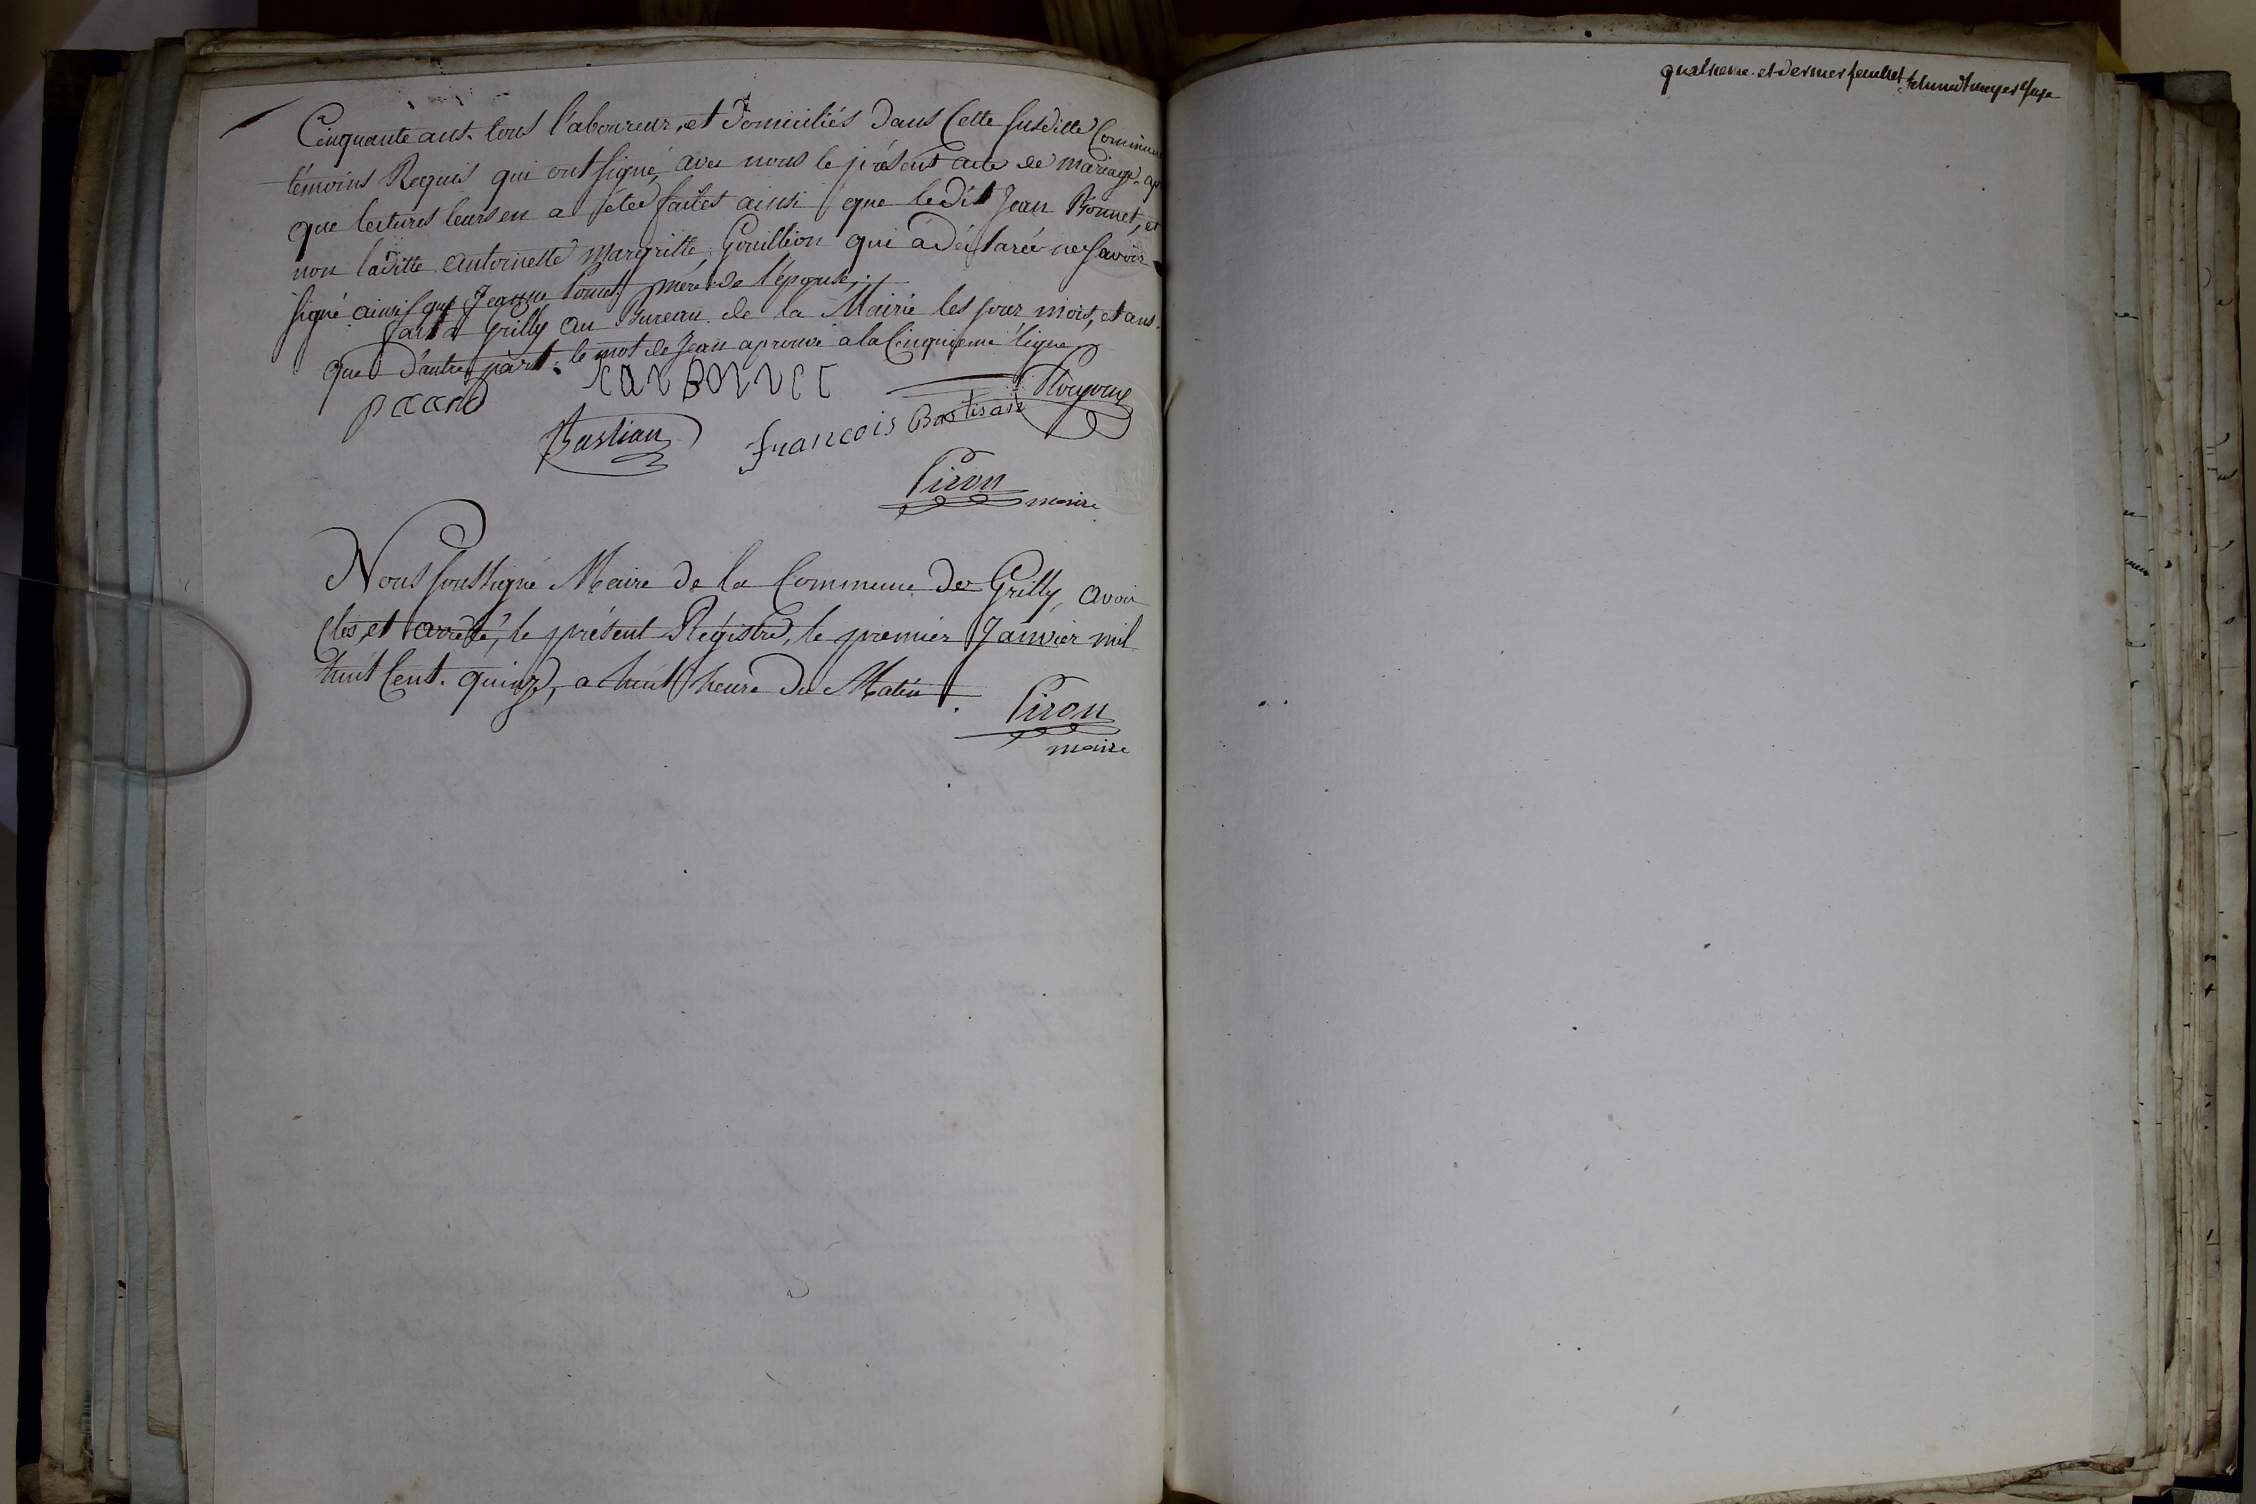 Cinquante ans. tous l'aboureur, et domiciliés dans Cette susditte Commune
témoins Requis qui ont signé avec nous le présent acte de mariage. ap
que lectures leurs en a étée faites ainsi que ledit Jean Bonnet, et
non laditte antoinette margritte, Gouillion qui à déclarée ne savoir
signé ainsi que Jeanne mère de l'épouse,
fait a Grilly au Bureau de la Mairie les jour mois, et ans.
que d'autre part. le mot de Jean aprouvé a la Cinquieme ligne
paano
ean Bonnet
Bastian
francois Bastian
Piron
maire
Nous soussigné Maire de la Commune de Grilly, avoir
clos, et arrêtté, le présent Régistre, le premier Janvier mil
huit Cent. quinze, a huit heure du Matin.
Piron
maire
quatrieme et dernier feuillet